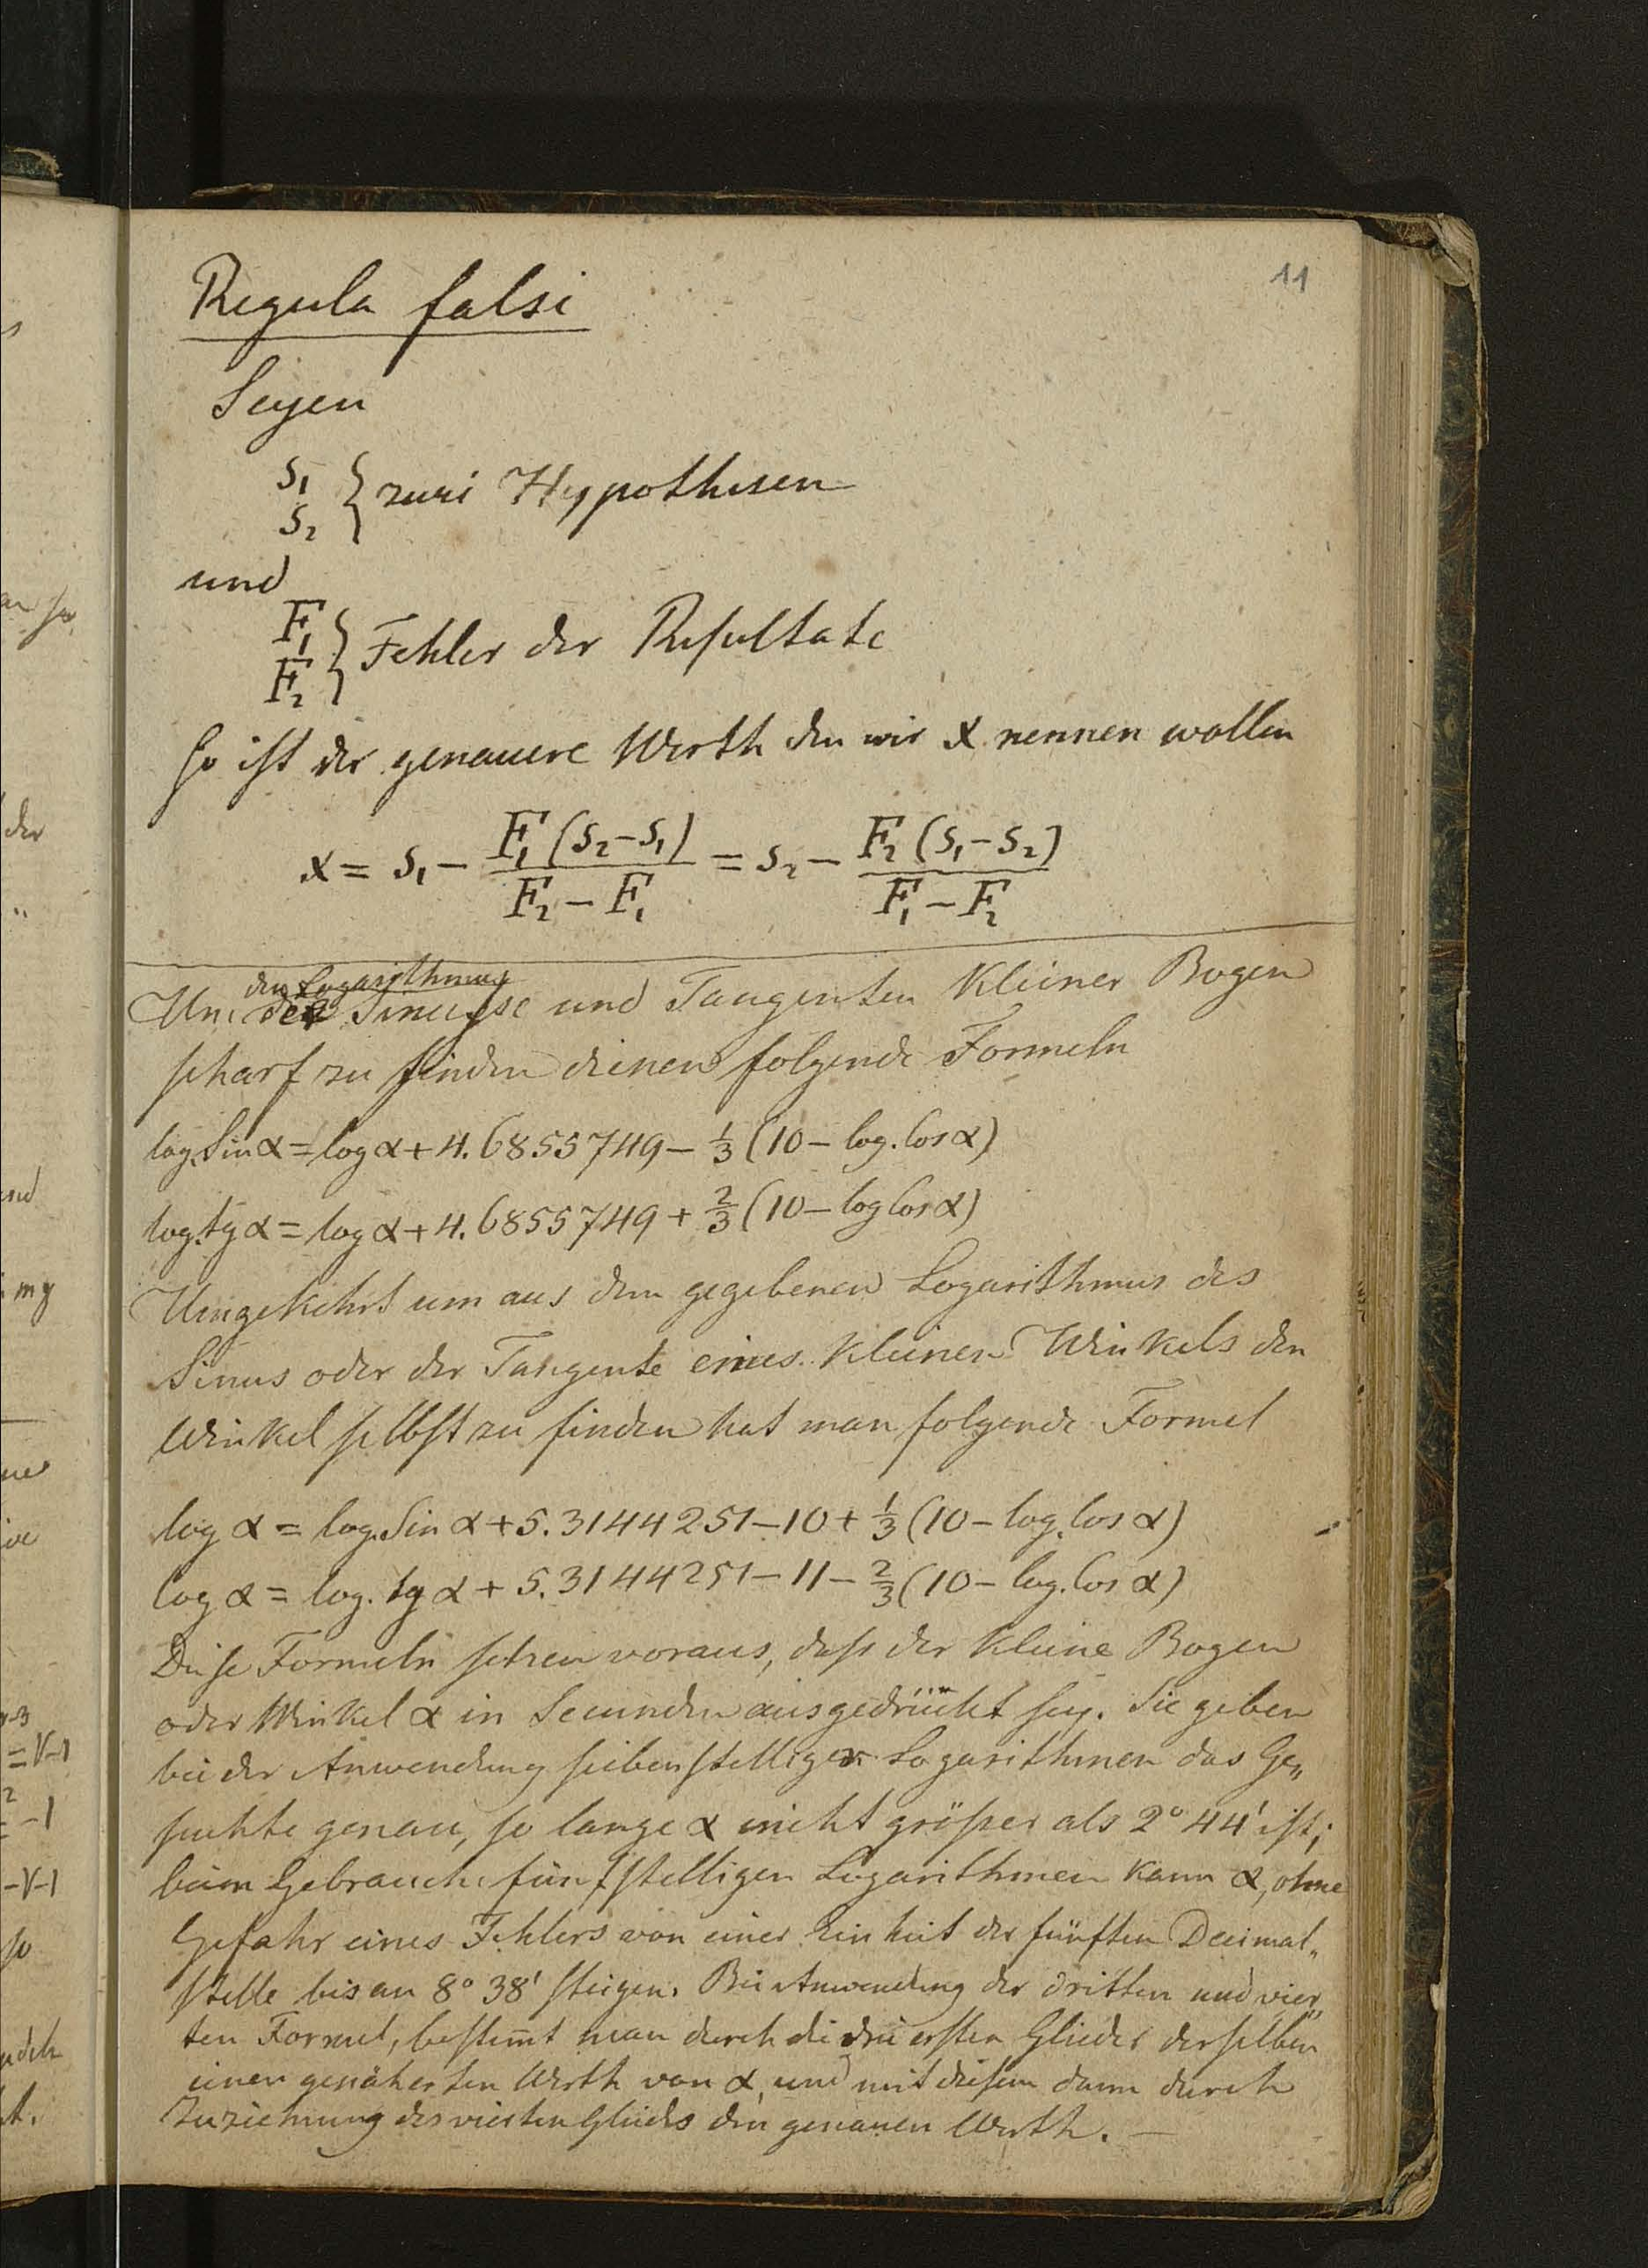 11
Regula falsi
Seyen
s₁
s₂ } zwei Hypothesen
und
F₁
F₂ } Fehler der Resultate
So ist der genauere Werth den wir x nennen wollen
x = s₁ − F₁(s₂−s₁) / F₂−F₁ = s₂ − F₂(s₁−s₂) / F₁−F₂
den Logarithmus
Um der Sinusse und Tangenten kleiner Bogen
scharf zu finden dienen folgende Formeln
log. Sin α = log α + 4.6855749 − 1/3 (10 − log. Cos α)
log. tg α = log α + 4.6855749 + 2/3 (10 − log Cos α)
Umgekehrt um aus dem gegebenen Logarithmus des
Sinus oder der Tangente eines kleinen Winkels den
Winkel selbst zu finden hat man folgende Formel
log α = log. Sin α + 5.3144251 − 10 + 1/3 (10 − log. Cos α)
log α = log. tg α + 5.3144251 − 11 − 2/3 (10 − log. Cos α)
Diese Formeln setzen voraus, dass der kleine Bogen
oder Winkel α in Secunden ausgedrückt sey. Sie geben
bei der Anwendung siebenstelliger Logarithmen das Ge„
suchte genau, so lange α nicht größer als 2° 44' ist;
beim Gebrauche fünfstelligen Logarithmen kann α, ohne
Gefahr eines Fehlers von einer Einheit der fünften Decimal„
stelle bis an 8° 38' steigen. Bei Anwendung der dritten und vier„
ten Formel, bestimt man durch die drei ersten Glieder derselben
einen genäherten Werth von α, und mit diesem dann durch
Zuziehung des vierten Glieds den genauen Werth. —